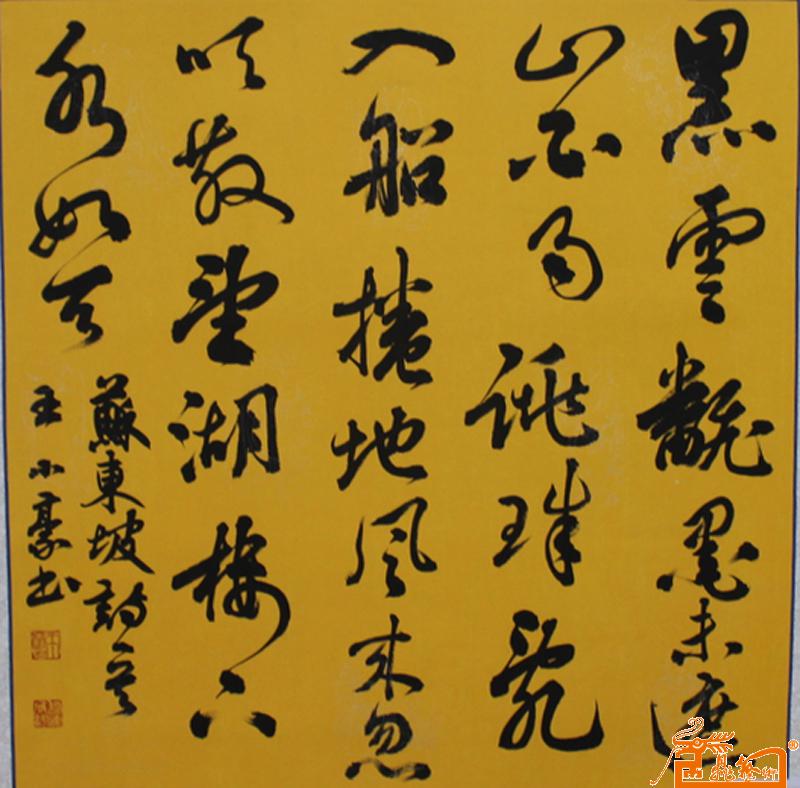 黑雲翻墨未遮
山白雨跳珠亂
入船捲地風來忽
吹散望湖樓下
水如天
蘇東坡詩
王小豪书